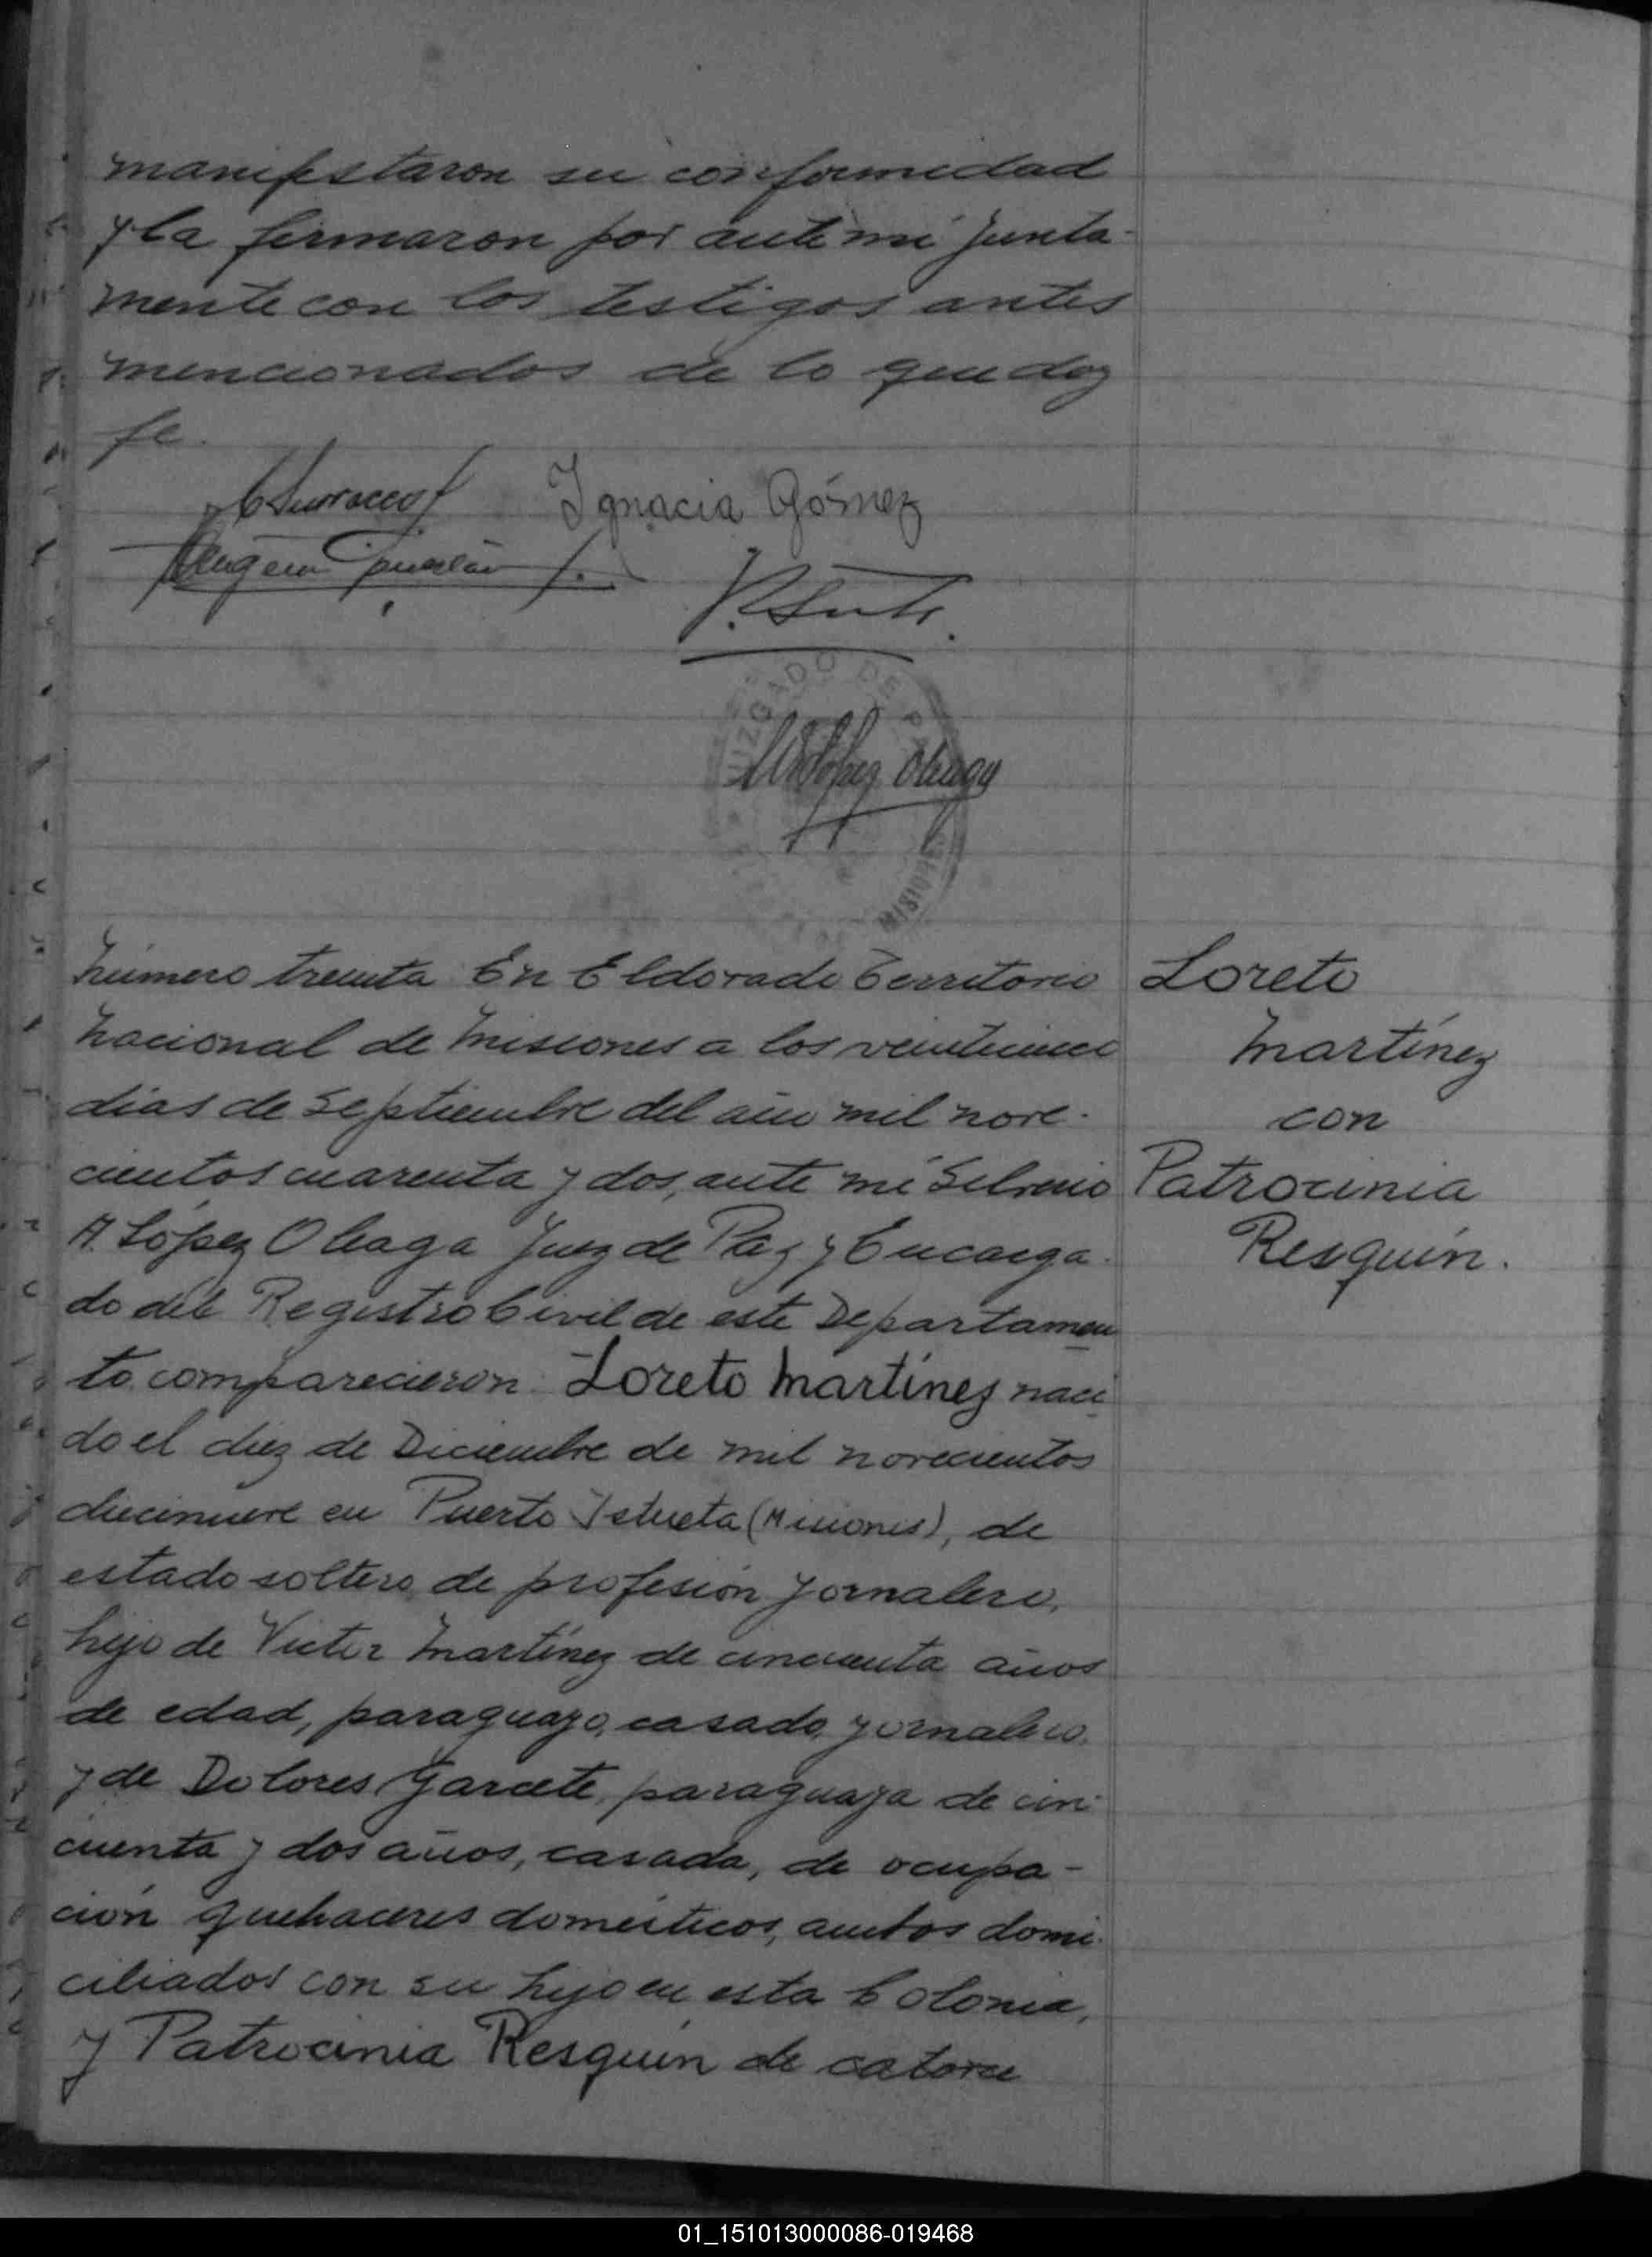 manifestaron su conformidad
y la firmaron por ante mi junta-
mente con los testigos antes
mencionados de lo que doy
fe.
Ignacia Gómez
JUZGADO DE PAZ
López Oleaga
MISIONES
Número treinta En Eldorado Territorio
Nacional de Misiones a los veinticinco
dias de Septiembre del año mil nove-
cientos cuarenta y dos, ante mi Silverio
A. López Oleaga Juez de Paz y Encarga-
do del Registro Civil de este Departamen
to comparecieron: Loreto Martínez naci
do el diez de Diciembre de mil novecientos
diecinueve en Puerto Istueta (Misiones), de
estado soltero, de profesión jornalero,
hijo de Victor Martínez de cincuenta años
de edad, paraguayo, casado, jornalero,
y de Dolores Garcete, paraguaya de cin-
cuenta y dos años, casada, de ocupa-
ción quehaceres domésticos, ambos domi-
ciliados con su hijo en esta Colonia,
y Patrocinia Resquín de catorce
Loreto
Martínez
con
Patrocinia
Resquín.
01_151013000086-019468